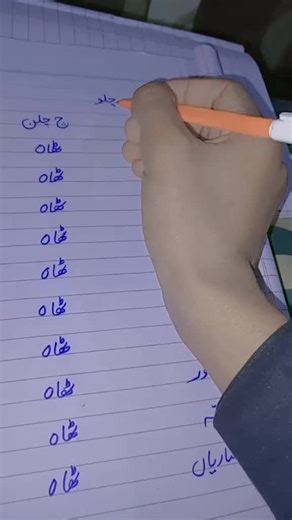 چلو
ج چلن
ٹھاہ
ٹھاہ
ٹھاہ
ٹھاہ
ٹھاہ
ٹھاہ
ٹھاہ
ٹھاہ
ٹھاہ
ٹھاہ